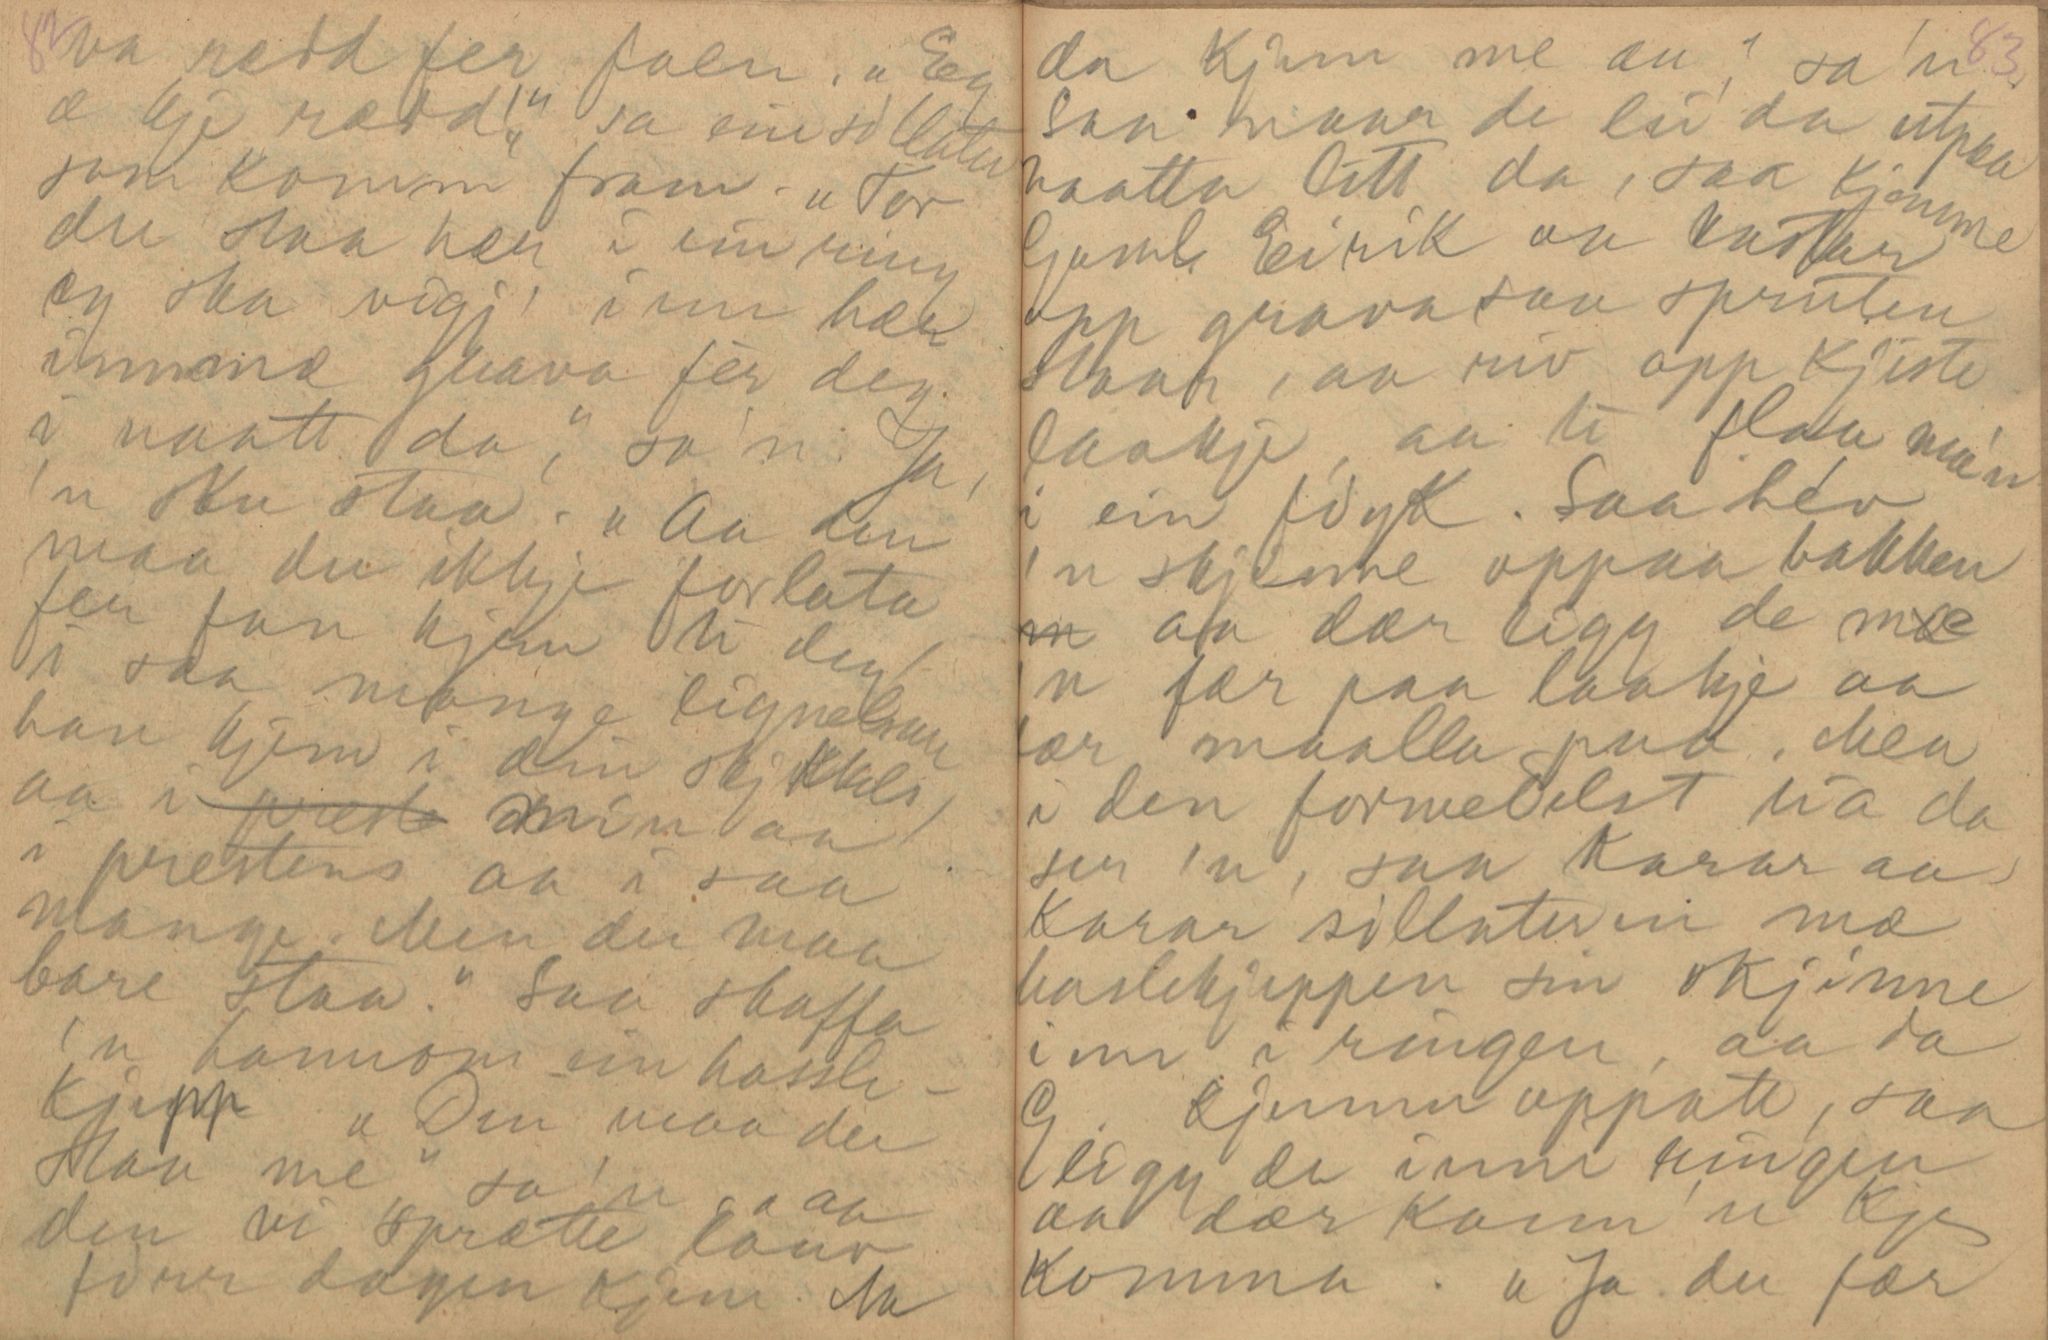 82
va rædd fer faen. „Eg
æ kje rædd!" sa ein sillater
som komm fram. „Tor
du staa hær i ein ring
eg ska vigj' inn hær
immæ grava fer deg
i naatt da," sa 'n. Ja,
'n sku staa. „Aa den
maa du ikkje forlata,
fer fan kjem ti deg
i saa mange lignelsar
han kjem i din skjikkels
aa i min aa
i prestens aa i saa
mange. Men du maa
bare staa." Saa skaffa
'n hannom ein hassle-
kjepp „Den maa du
slaa me" sa 'n, „aa
den vi sprætte lauv
förr dagen kjem. Na
83.
da kjem me au," sa 'n
Saa. naar de lei da utpaa
naatta litt da, saa kjemme
Gamle Eirik aa kastar
opp grava saa spruten
staar, aa riv opp kjiste
laakje, aa ti flaa ma'n
i ein föyk. Saa hev
'n skjinne oppaa bakken
aa dær ligg de mæ
'n fær paa laakje aa
tær maalla paa. Men
i den formedelst tia da
ser 'n, saa karar aa
karar sillateren mæ
haslekjeppen sin skjinne
inn i ringen, aa da
G. kjemm oppatt, saa
ligg de inni ringen
aa dær kann 'n kje
komma. „Ja du fær